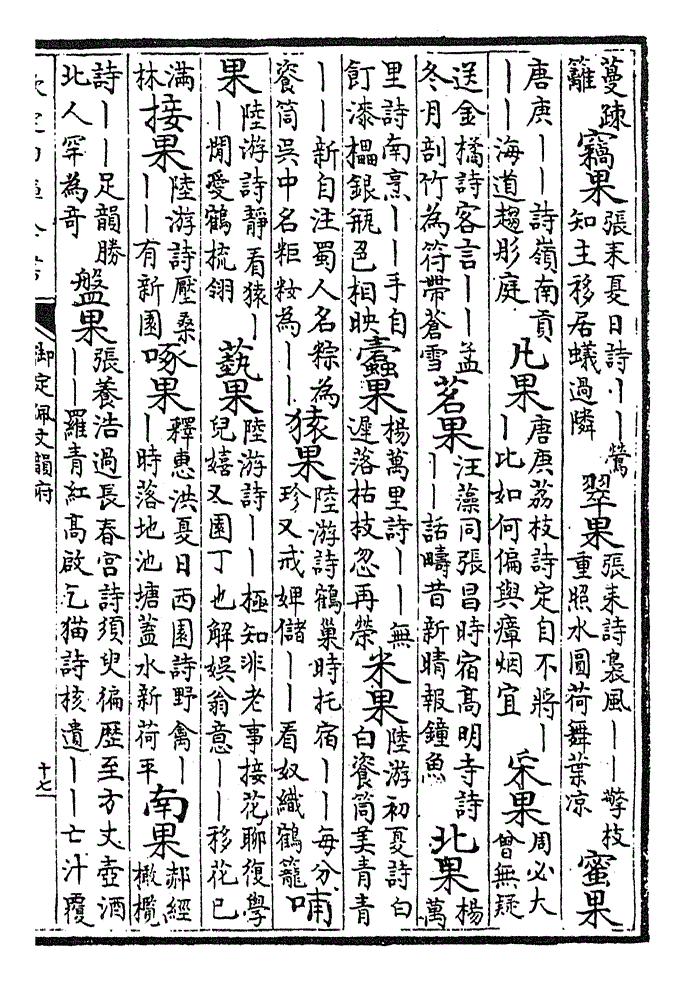 蔓疎籬 竊果 張耒夏日詩丨丨鶯知主移居蟻過隣 翠果 張耒詩裊風丨丨擎枝重照水圓荷舞葉凉 蜜果
唐庚丨丨詩嶺南貢丨丨海道趨彤庭 凡果 唐庚荔枝詩定自不將丨丨比如何偏與瘴烟宜 采果 周必大曾無疑
送金橘詩客言丨丨孟冬月剖竹為符帶蒼雪 茗果 汪藻同張昌時宿高明寺詩丨丨話疇昔新晴報鐘魚 北果 楊萬
里詩南烹丨丨手自飣漆櫑銀瓶色相映 蠹果 楊萬里詩丨丨無遲落枯枝忽再榮 米果 陸游初夏詩白白瓷筒美青青
丨丨新自注蜀人名粽為瓷筒吳中名粔籹為丨丨 猿果 陸游詩鶴巢時托宿丨丨每分珍又戒婢儲丨丨看奴織鶴籠 哺
果 陸游詩靜看猿丨丨閒愛鶴梳翎 藝果 陸游詩丨丨極知非老事接花聊復學兒嬉又園丁也解娛翁意丨丨移花已
滿林 接果 陸游詩壓桑丨丨有新園 啄果 釋惠洪夏日西園詩野禽丨丨時落地池塘蓋水新荷平 南果 郝經橄欖
詩丨丨足韻勝北人罕為奇 盤果 張養浩過長春宮詩須臾徧歷至方丈壺酒丨丨羅青紅高啟乞猫詩核遺丨丨亡汁覆
欽定四庫全書 御定佩文韻府 十七